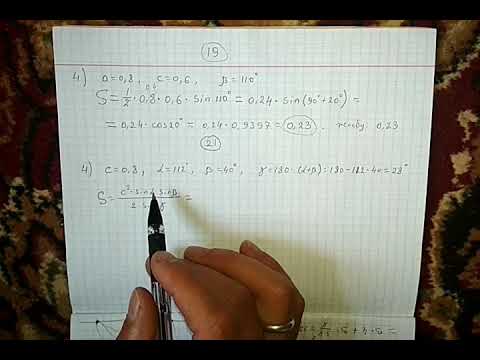 19
4) a=0,8, c=0,6, β=110°
S=1/2·0,8·0,6·sin110°=0,24·sin(90°+20°)=
0,4
=0,24·cos20°=0,24·0,9397=0,23.
0,23
21
4) c=0,8, α=112°, β=40°, γ=180-(α+β)=180-112-40=28°
S= c²·sinα sinβ / 2 =